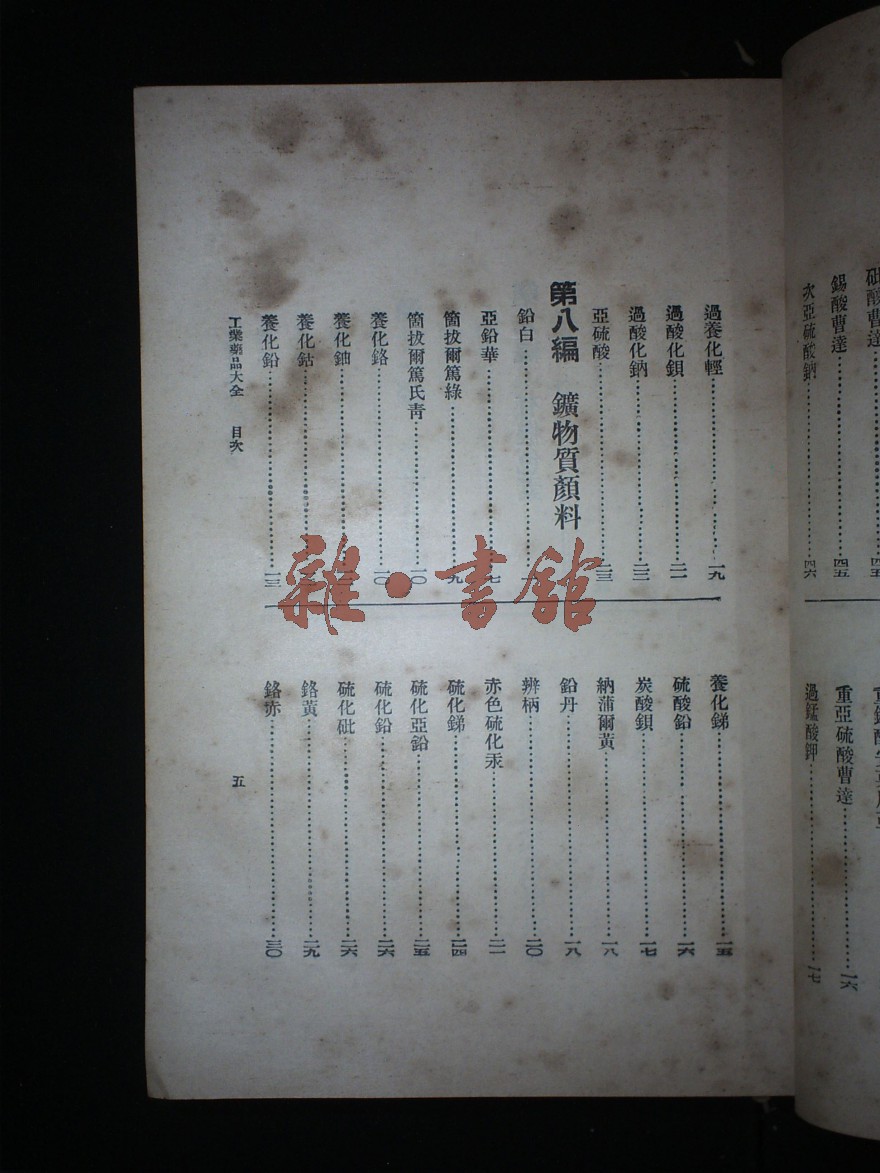 砒酸曹達……四五
錫酸曹達……四五
次亞硫酸鈉……四六
重亞硫酸曹達……一六
過錳酸鉀……一七
過養化輕……一九
過酸化鋇……二一
過酸化鈉……二二
亞硫酸……二三
第八編 鑛物質顏料
鉛白……
亞鉛華……七
箇拔爾篤綠……九
箇拔爾篤氏青……一〇
養化鉻……一〇
養化鈾……
養化鈷……
養化鉛……一三
養化銻……一五
硫酸鉛……一六
炭酸鋇……一七
納蒲爾黃……一八
鉛丹……一八
辨柄……二〇
赤色硫化汞……二一
硫化銻……二四
硫化亞鉛……二五
硫化鉛……二六
硫化砒……二六
鉻黃……二九
鉻赤……三〇
工業藥品大全 目次
五
雜·書館